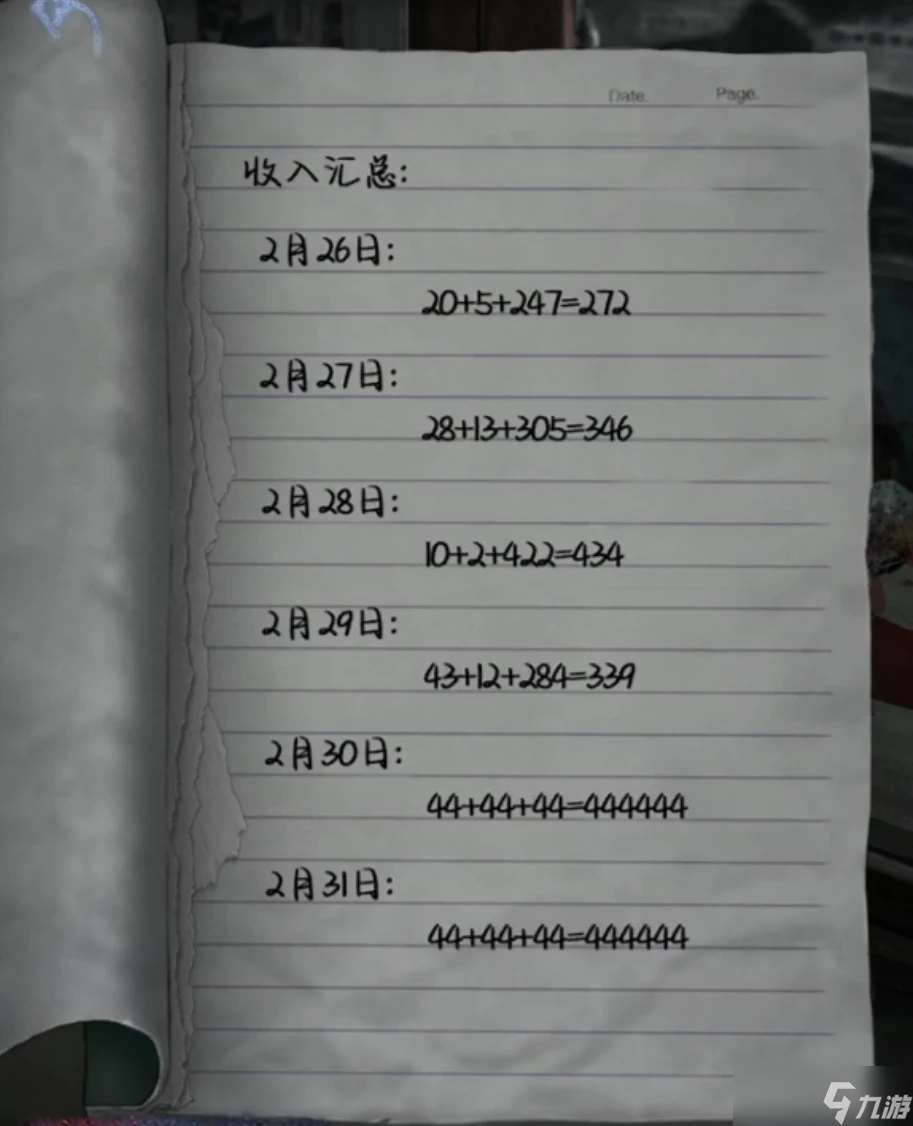 Date.
Page.
收入汇总:
2月26日:
20+5+247=272
2月27日:
28+13+305=346
2月28日:
10+2+422=434
2月29日:
43+12+284=339
2月30日:
44+44+44=444444
2月31日:
44+44+44=444444
九游